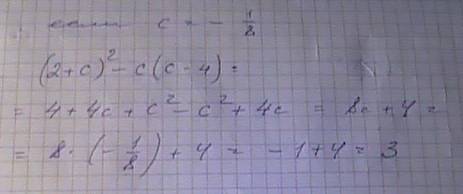 если c = - 1/8
(2+c)² - c(c-4) =
= 4 + 4c + c² - c² + 4c = 8c + 4 =
= 8 · (- 1/8) + 4 = - 1 + 4 = 3